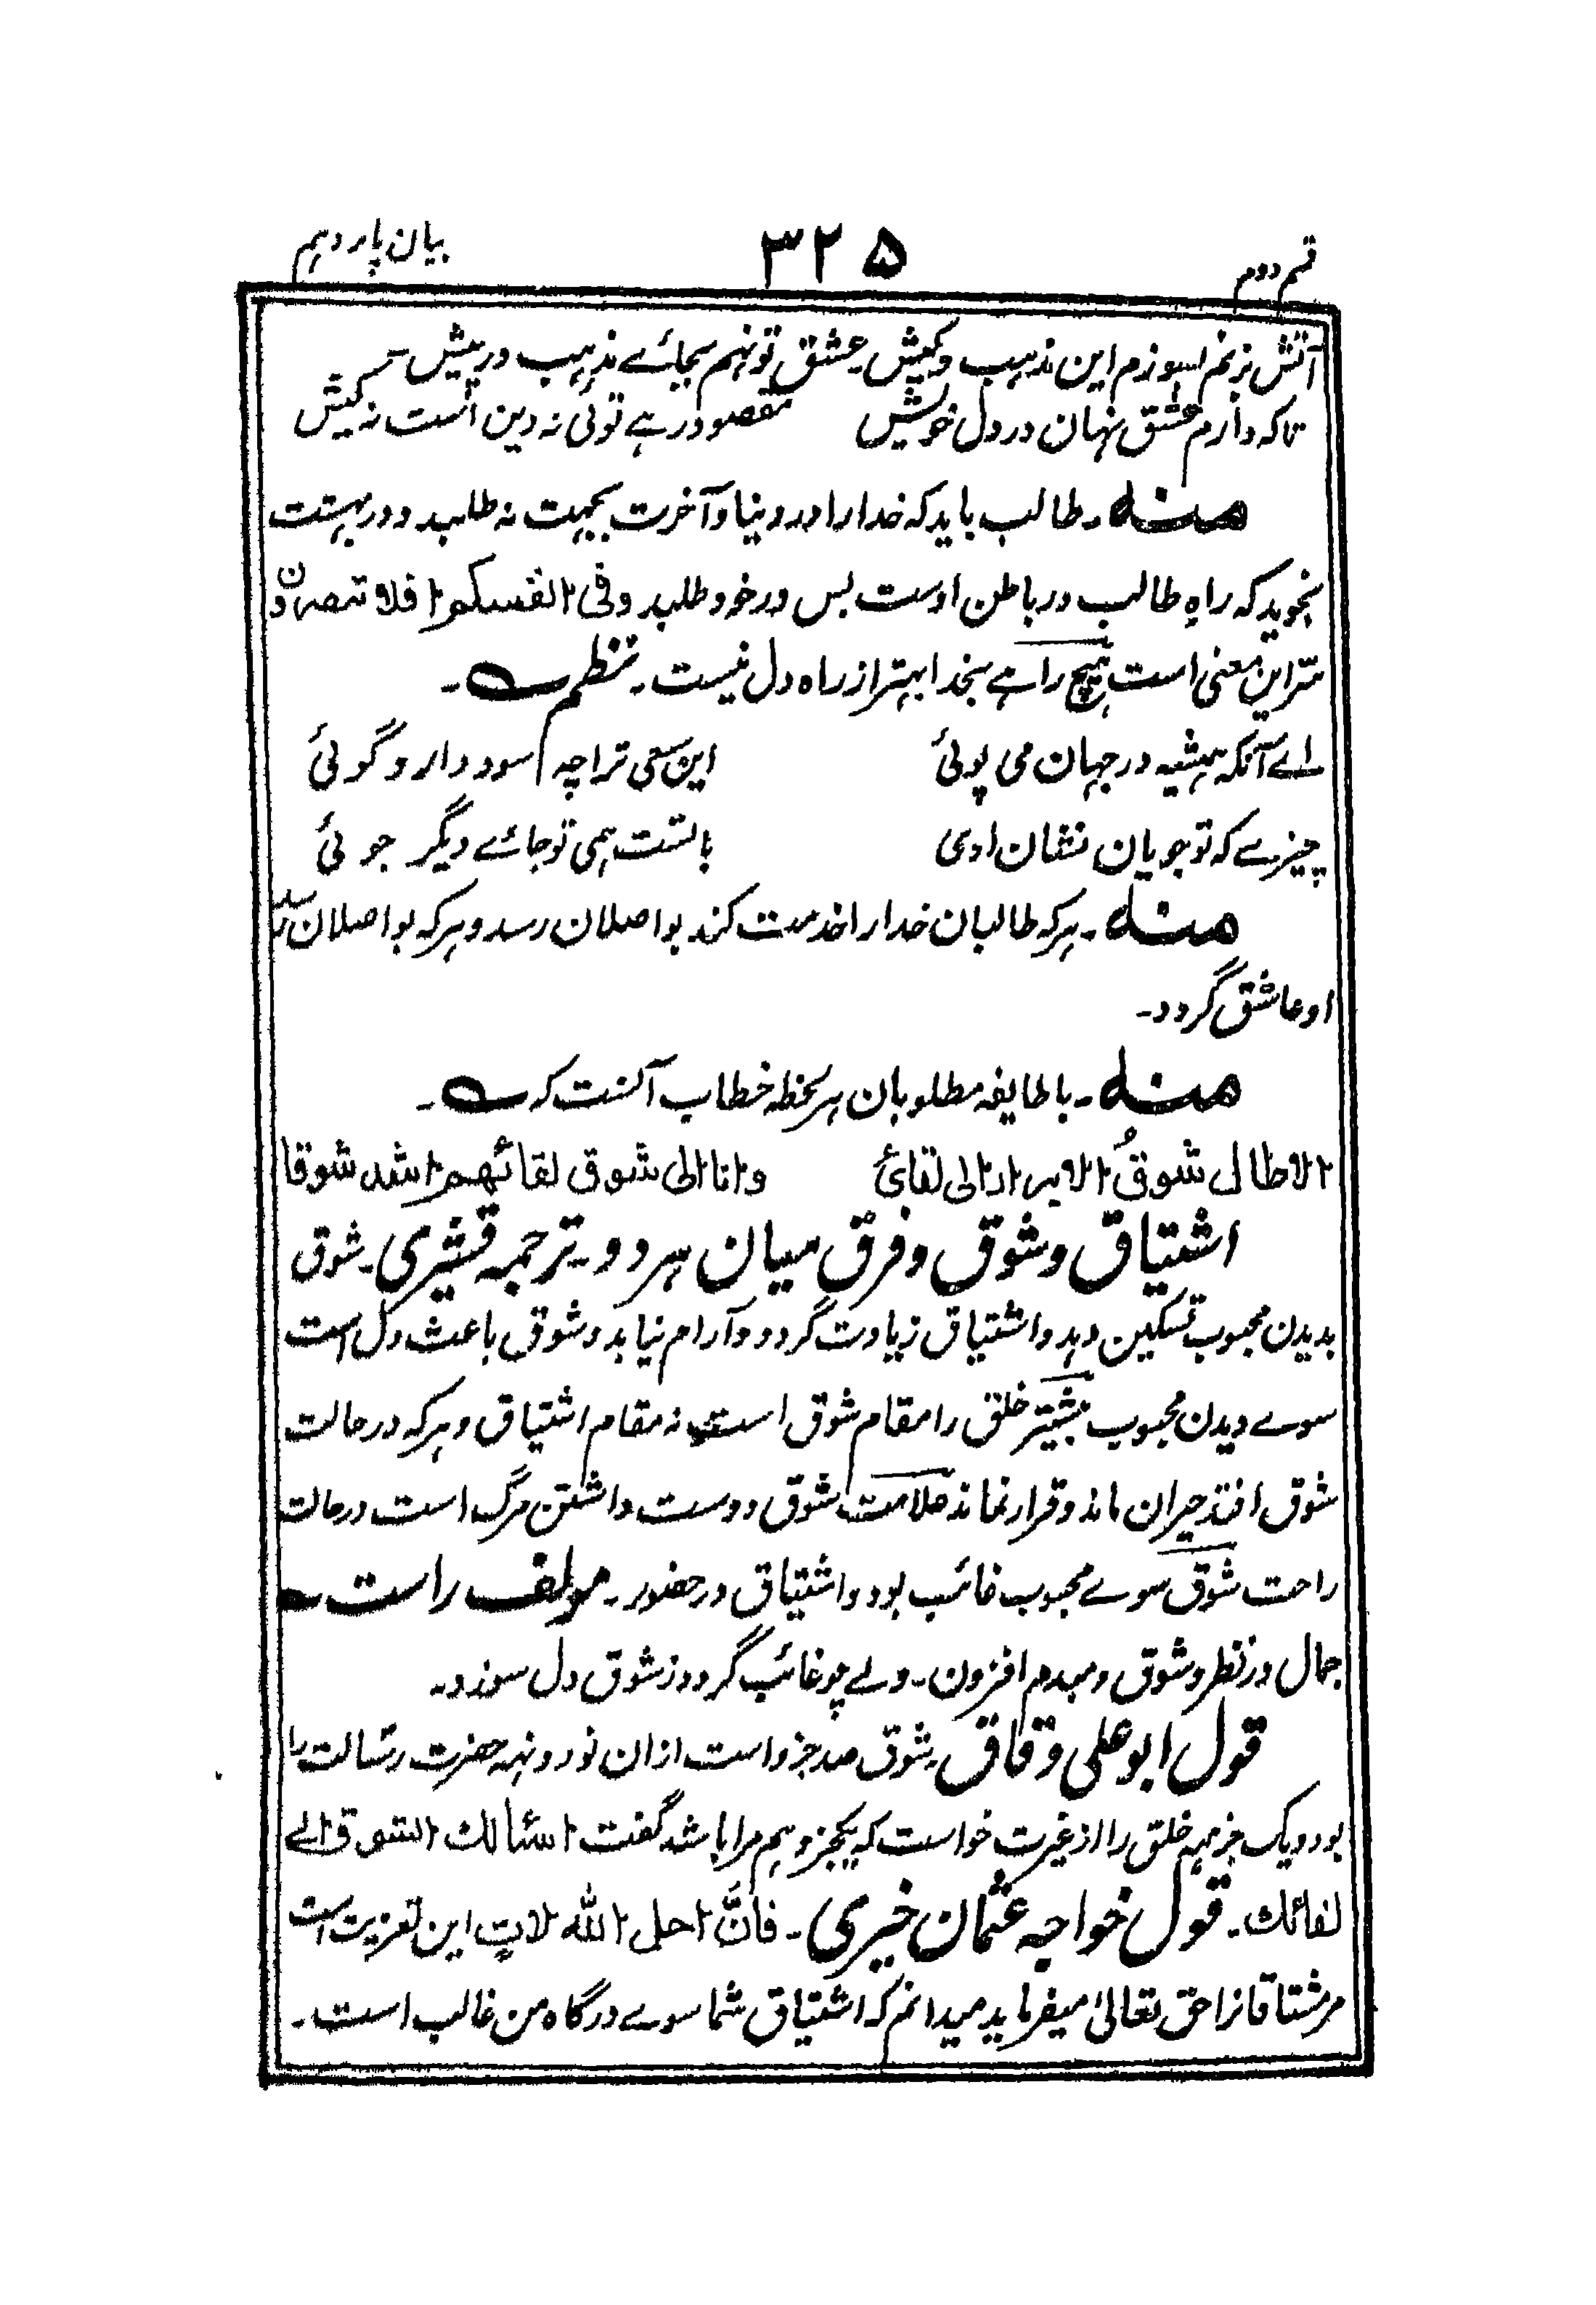 قسم دوم ۳۲۵ بیان یازدہم
آتش بزنم بسوزم این مذہب و کیش۔ عشق تو نہم بجائے مذہب در پیش
تا کہ دارم عشق نہان در دل خویش مقصود رہے توئی نہ دین است نہ کیش
منہ۔ طالب باید کہ خدارا در دنیا و آخرت بجہت نہ طلبد و در بہشت
نجوید کہ راہ طالب در باطن اوست پس در خود طلبد وفی انفسکم افلا تبصرون
سر این معنی است ہیچ راہے بخدا بہتر از راہ دل نیست۔ نظم ؎۔
اے آنکہ ہمیشہ در جہان می پوئی این سعی ترا چہ سود دارد گوئی
چیزے کہ تو جویان نشان اوی باتست ہمی تو جائے دیگر جوئی
منہ۔ ہر کہ طالبان خدارا خدمت کند بواصلان رسد و ہر کہ بواصلان رسد
او عاشق گردد۔
منہ۔ با طایفہ مطلوبان ہر لحظہ خطاب آنست کہ ؎۔
الا طال شوقُ الابرار الی لقائ وانا الی شوق لقائهم اشد شوقا
اشتیاق و شوق و فرق میان ہر دو۔ ترجمہ قشیری۔ شوق
بدیدن محبوب تسکین دہد و اشتیاق زیادت گردد و آرام نیابد و شوق باعث دل است
سوے دیدن محبوب بیشتر خلق را مقام شوق است نہ مقام اشتیاق و ہر کہ در حالت
شوق افتد حیران ماند و قرار نماند علامت شوق دوست داشتن مرگ است در حالت
راحت شوق سوے محبوب غائب بود و اشتیاق در حضور۔ مولف راست ؎
جمال در نظر و شوق ومبدم افزون۔ ولے چو غائب گردد ز شوق دل سوزد۔
قول ابو علی دقاق۔ شوق صد جزو است ازان نود و نہہ حضرت رسالت را
بود و یک جز ہمہ خلق را از غیرت خواست کہ یکجزو ہم مرا باشد گفت اسئالك الشوق الے
لقائك۔ قول خواجہ عثمان خیری۔ فانَّ اجل الله لاٰتٍ این تعزیت است
مر مشتاقانرا حق تعالیٰ میفرماید میدانم کہ اشتیاق شما سوے درگاہ من غالب است۔